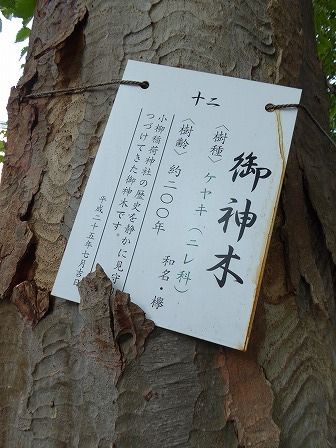 十二
御神木
〈樹種〉ケヤキ(ニレ科)
和名・欅
〈樹齢〉約二〇〇年
小柳稲荷神社の歴史を静かに見守
つづけてきた御神木です。
平成二十五年七月吉日